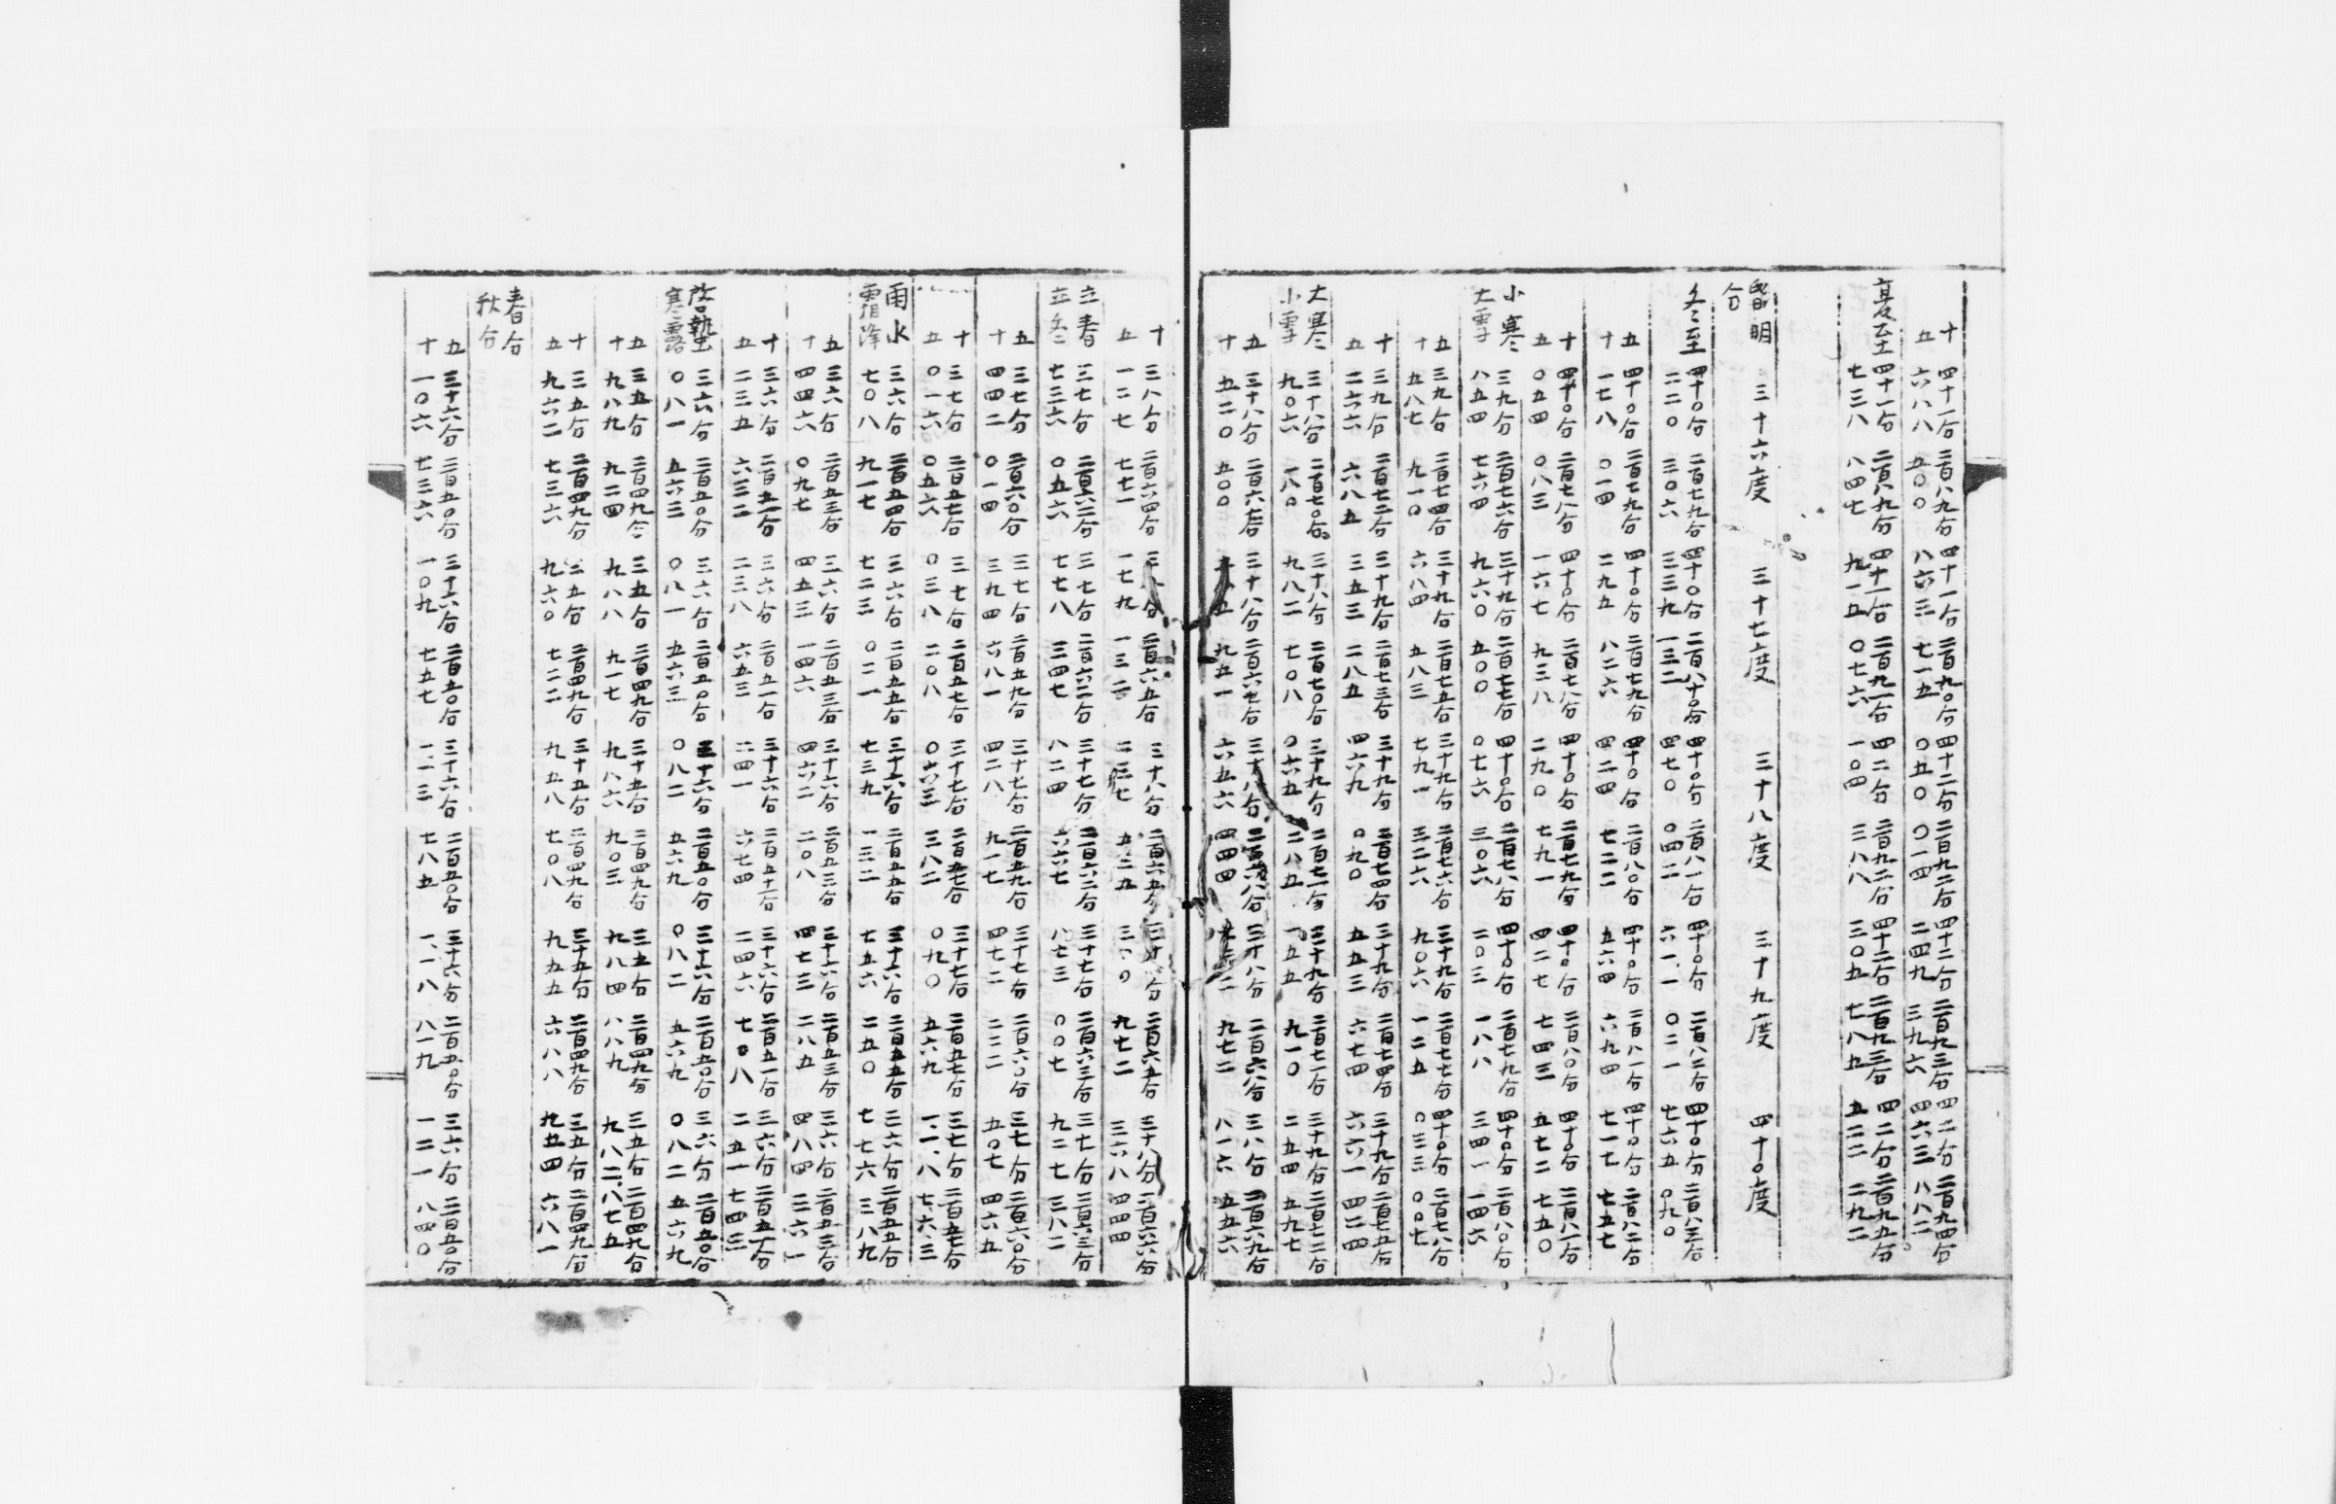 十 四十一分 二百八九分 四十一分 二百九〇分 四十二分 二百九二分 四十二分 二百九三分 四二分 二百九四分
五 六八八 五〇〇 八六三 七一五 〇五〇 〇一四 二四九 三九六 四六三 八八二
夏至 四十一分 二百八九分 四十一分 二百九一分 四二分 二百九二分 四十二分 二百九三分 四二分 二百九五分
七三八 八四七 九一五 〇七六 一〇四 三八八 三〇五 七八九 五二二 二九二
昏明分 三十六度 三十七度 三十八度 三十九度 四十〇度
冬至 四十〇分 二百七九分 四十〇分 二百八十〇分 四十〇分 二百八一分 四十〇分 二百八二分 四十〇分 二百八三分
二二〇 三〇六 三三九 一三二 四七〇 〇四二 六一一 〇二一 七六五 〇九〇
五 四十〇分 二百七九分 四十〇分 二百七九分 四十〇分 二百八〇分 四十〇分 二百八一分 四十〇分 二百八二分
十 一七八 〇一四 二九五 八二六 四二四 七二二 五六四 六九四 七一七 七五七
十 四十〇分 二百七八分 四十〇分 二百七八分 四十〇分 二百七九分 四十〇分 二百八〇分 四十〇分 二百八一分
五 〇五四 〇八三 一六七 九三八 二九〇 七九一 四二七 七四三 五七二 七五〇
小寒 三九分 二百七六分 三十九分 二百七七分 四十〇分 二百七八分 四十〇分 二百七九分 四十〇分 二百八〇分
大雪 八五四 七六四 九六〇 五〇〇 〇七六 三〇六 二〇三 一八八 三四一 一四六
五 三九分 二百七四分 三十九分 二百七五分 三十九分 二百七六分 三十九分 二百七七分 四十〇分 二百七八分
十 五八七 九一〇 六八四 五八三 七九一 三二六 九〇六 一二五 〇三三 〇〇七
十 三九分 二百七二分 三十九分 二百七三分 三十九分 二百七四分 三十九分 二百七四分 三十九分 二百七五分
五 二六六 六八五 三五三 二八五 四六九 〇九〇 五五三 六七四 六六一 四二四
大寒 三十八分 二百七〇分 三十八分 二百七〇分 三十九分 二百七一分 三十九分 二百七一分 三十九分 二百七二分
小雪 九〇六 一八〇 九八二 七〇八 〇六五 二八五 一五五 九一〇 二五四 五九七
五 三十八分 二百六七分 三十八分 二百六七分 三十八分 二百六八分 三十八分 二百六八分 三八分 二百六九分
十 五二〇 五〇〇 九五一 六五六 四四四 九七二 八一六 五五六
十 三八分 二百六四分 二百六五分 三十八分 二百六五分 二百六五分 三十八分 二百六六分
五 一二七 七七一 一七九 一三二 二三七 九七二 三六八 四四四
立春 三七分 二百六二分 三七分 二百六二分 三十七分 二百六二分 三十七分 二百六三分 三十七分 二百六三分
立冬 七三六 〇五六 七七八 三四七 八二四 六六七 八七三 〇〇七 九二七 三八二
五 三七分 二百六〇分 三七分 二百五九分 三十七分 二百五九分 三十七分 二百六〇分 三七分 二百六〇分
十 四四二 〇一四 三九四 六八一 四二八 九一七 四七二 二二二 五〇七 四六五
十 三七分 二百五七分 三七分 二百五七分 三十七分 二百五七分 三十七分 二百五七分 三七分 二百五七分
五 〇一六 〇五六 〇三八 二〇八 〇六三 三八二 〇九〇 五六九 一一八 七六三
雨水 三六分 二百五四分 三六分 二百五五分 三十六分 二百五五分 三十六分 二百五五分 三六分 二百五五分
霜降 七〇八 九一七 七二三 〇二一 七三九 一三二 七五六 二五〇 七七六 三八九
五 三六分 二百五三分 三六分 二百五三分 三十六分 二百五三分 三十六分 二百五三分 三六分 二百五三分
十 四四六 〇九七 四五三 一四六 四六二 二〇八 四七三 二八五 四八四 三六一
十 三六分 二百五一分 三六分 二百五一分 三十六分 二百五十一分 三十六分 二百五一分 三六分 二百五一分
五 二三五 六三二 二三八 六五三 二四一 六七四 二四六 七〇八 二五一 七四三
啓蟄 三六分 二百五〇分 三六分 二百五〇分 三十六分 二百五〇分 三十六分 二百五〇分 三六分 二百五〇分
寒露 〇八一 五六三 〇八一 五六三 〇八二 五六九 〇八二 五六九 〇八二 五六九
五 三五分 二百四九分 三五分 二百四九分 三十五分 二百四九分 三五分 二百四九分 三五分 二百四九分
十 九八九 九二四 九八八 九一七 九八六 九〇三 九八四 八八九 九八二 八七五
十 三五分 二百四九分 三五分 二百四九分 三十五分 二百四九分 三十五分 二百四九分 三五分 二百四九分
五 九六二 七三六 九六〇 七二二 九五八 七〇八 九五五 六八八 九五四 六八一
春分
秋分
五 三十六分 二百五〇分 三十六分 二百五〇分 三十六分 二百五〇分 三十六分 二百五〇分 三六分 二百五〇分
十 一〇六 七三六 一〇九 七五七 一一三 七八五 一一八 八一九 一二一 八四〇